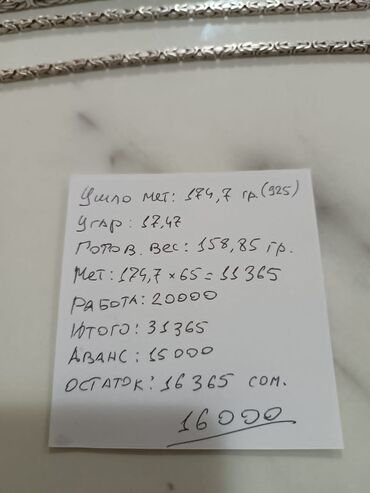 Ушло мет: 174,7 гр.(925)
Угар: 17,47
Готов. вес: 158,85 гр.
Мет: 174,7 × 65 = 11365
Работа: 20000
Итого: 31365
Аванс: 15000
Остаток: 16365 сом.
16000